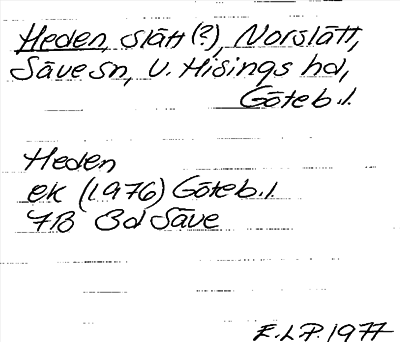 Heden, slätt (?), Norslätt,
Säve sn, V. Hisings hd,
Göteb. l.
Heden
ek (1976) Göteb. l.
7B 8d Säve
E.L.P. 1977